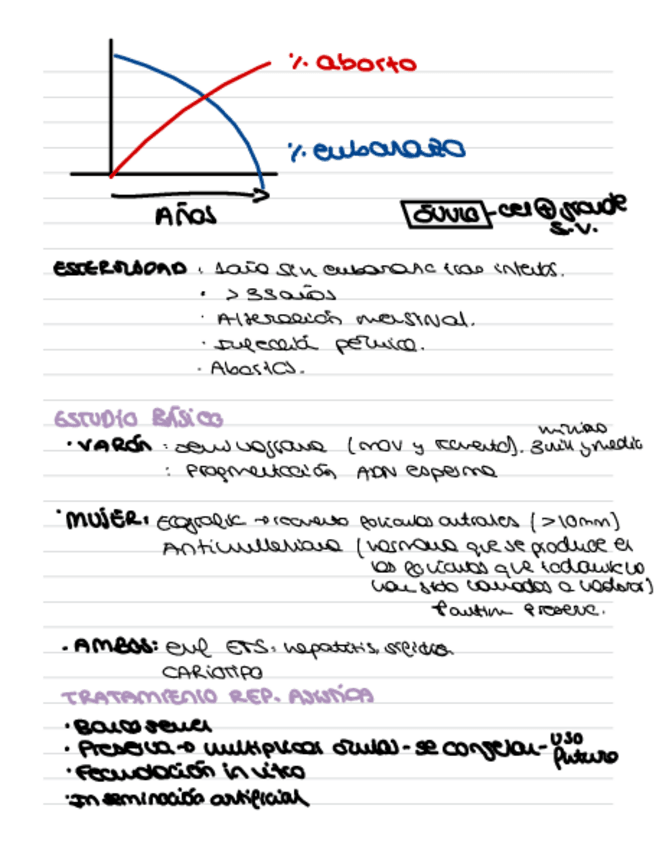 % aborto
% embarazo
AÑOS
óvulo - cel ⊕ grande
S.V.
ESTERILIDAD: 1 año sin embarazo tras intento.
· > 35 años
· Alteración menstrual.
· Infección pélvica.
· Abortos.
ESTUDIO BÁSICO
· VARÓN: seminograma (mov y recuento). mínimo 3 mill y medio
: Fragmentación ADN esperma
· MUJER: Ecografía → recuento folículos antrales (>10mm)
Antimulleriana (hormona que se produce en
los folículos que todavía no
han sido llamados a madurar)
· AMBOS: enf ETS: hepatitis, sífilis
CARIOTIPO
TRATAMIENTO REP. ASISTIDA
· Banco semen
· Preserva → multiplicar óvulos - se congelan - uso futuro
· Fecundación in vitro
· Inseminación artificial